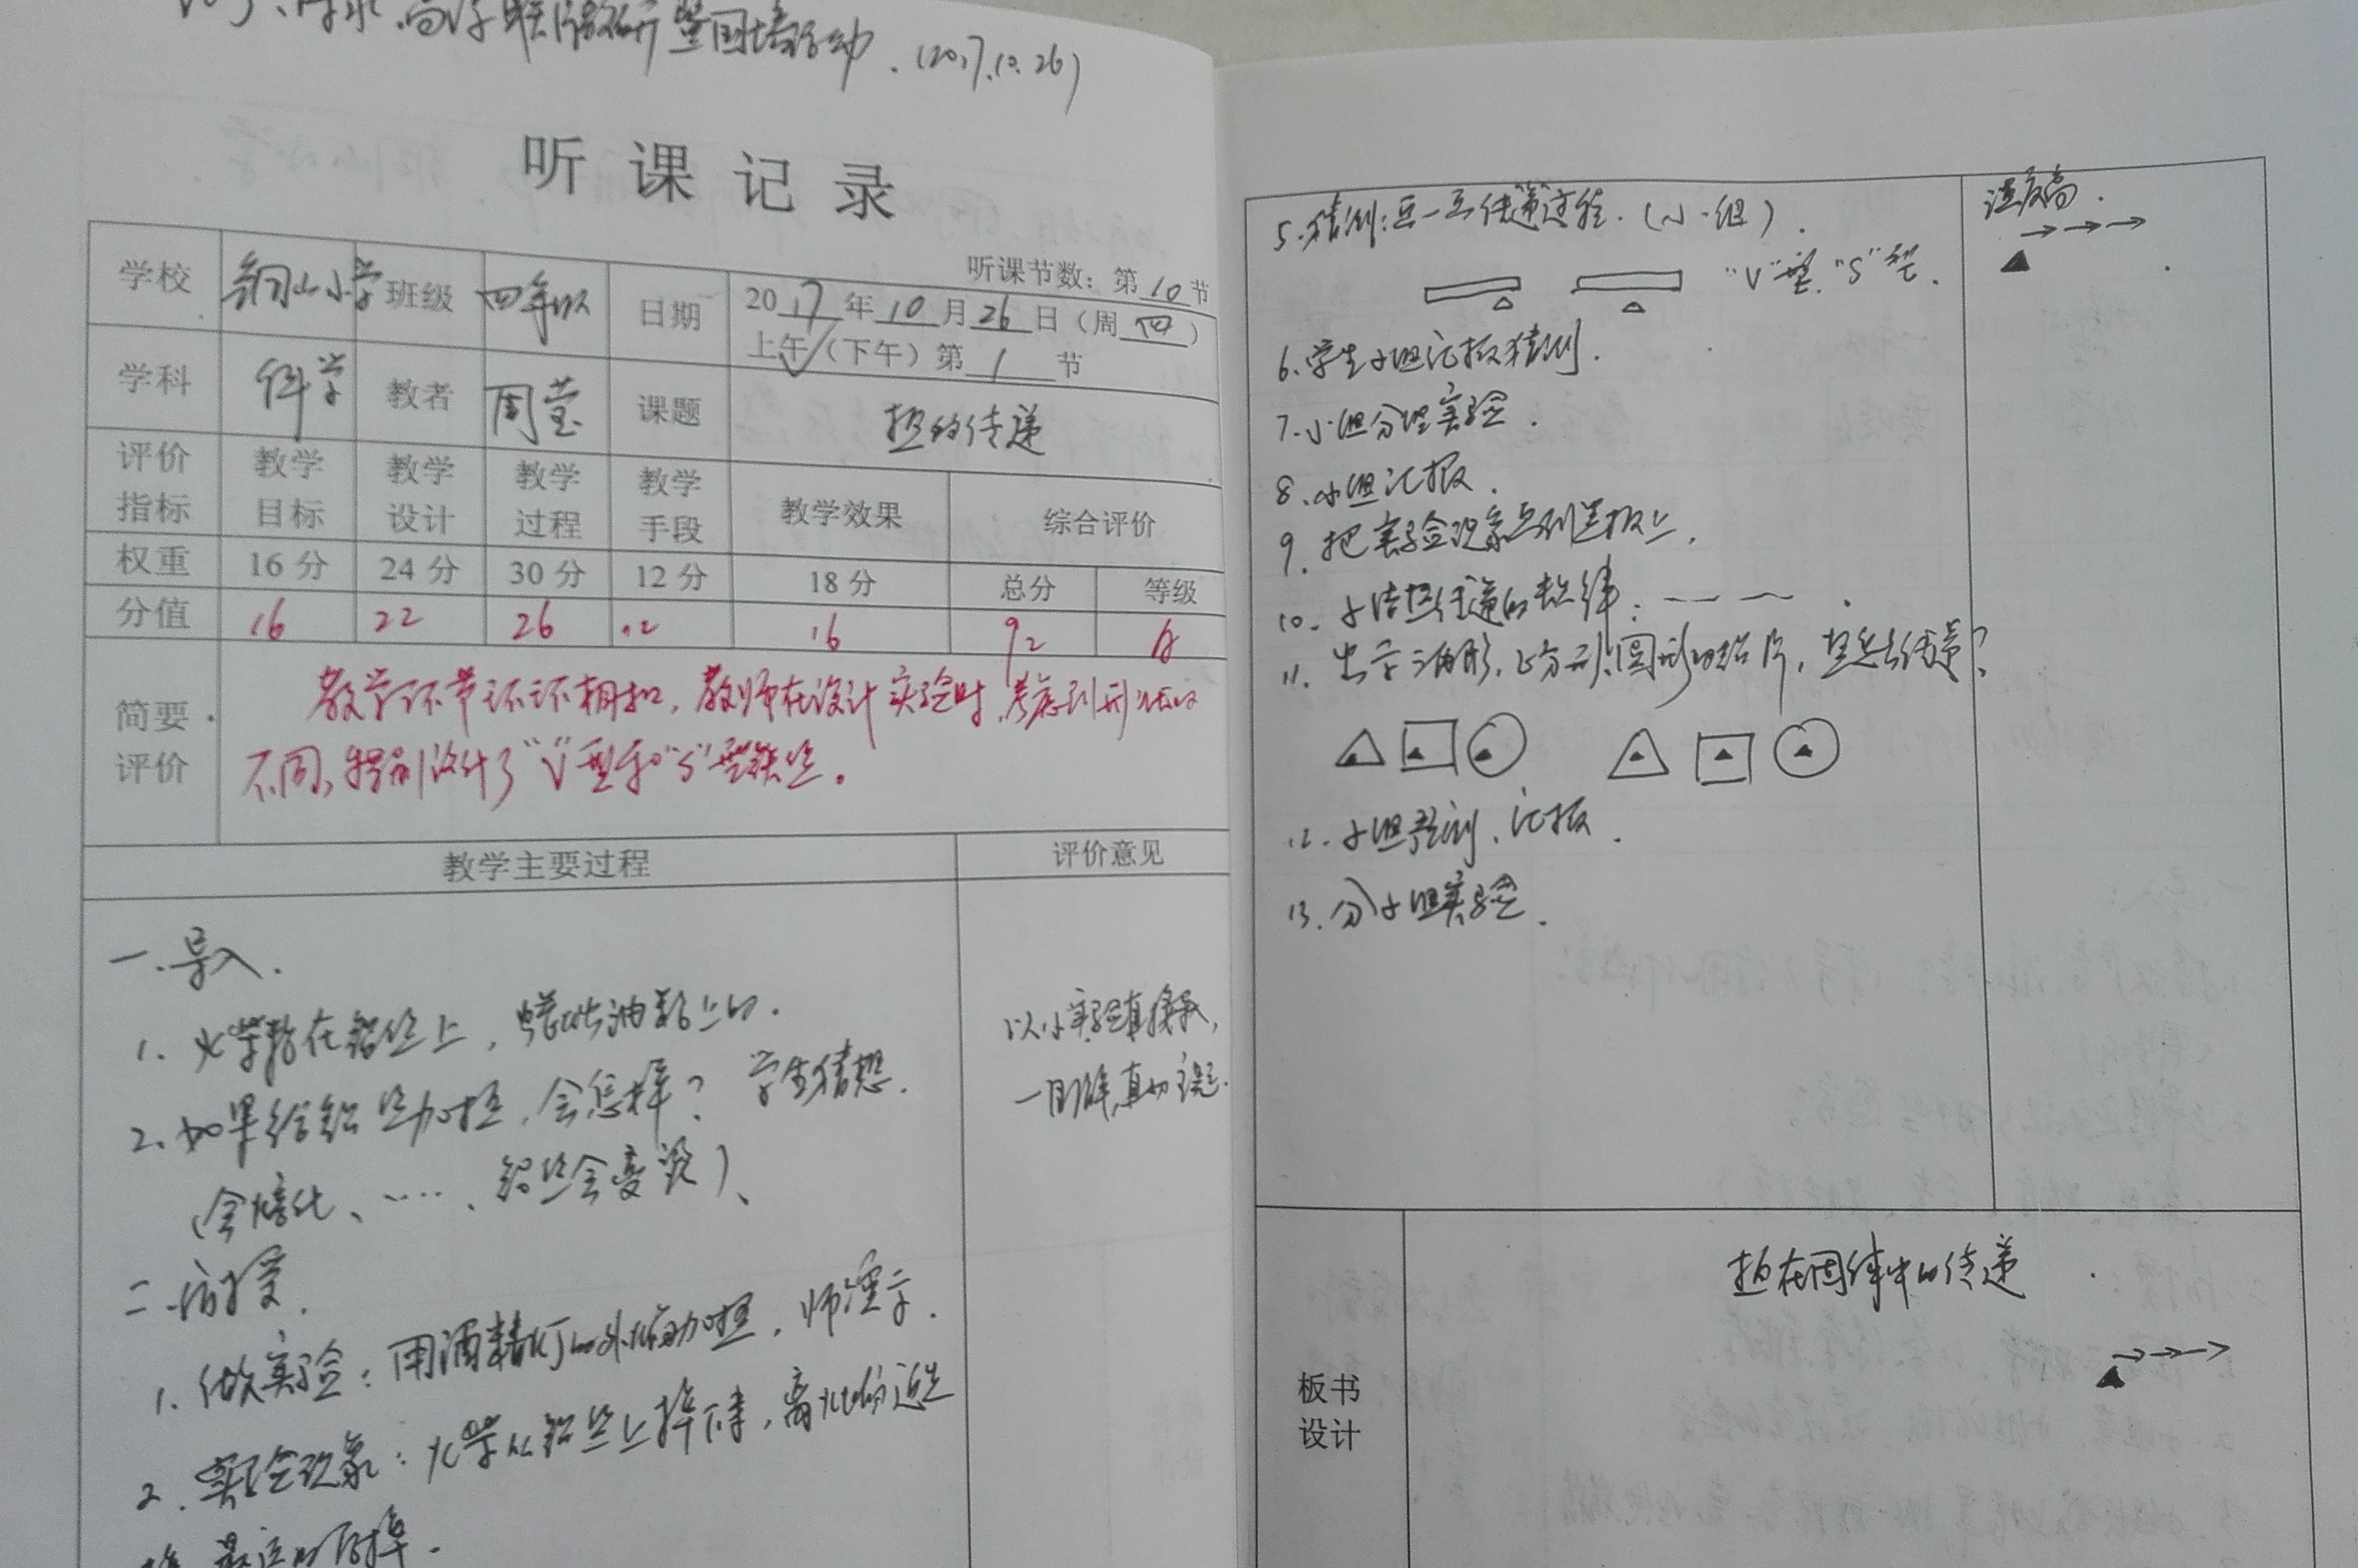 联片教研暨国培活动.(2017.10.26)
听课记录
听课节数:第10节
学校 铜山小学 班级 四年级 日期 2017年10月26日(周四)
上午√(下午)第1节
学科 科学 教者 周莹 课题 热的传递
评价指标 教学目标 教学设计 教学过程 教学手段 教学效果 综合评价
权重 16分 24分 30分 12分 18分 总分 等级
分值 16 22 26 12 16 92 A
简要评价 教学环节环环相扣,教师在设计实验时,考虑到形状的
不同,特别设计了“V”型和“S”型铁丝。
教学主要过程 评价意见
一.导入.
1、火柴粘在铝丝上,蜡
2、如果给铝丝加热,会怎样?学生猜想.
(会熔化、……、铝丝会变
以小实验直接
一目了然,直切课题.
二.新授.
1.做实验:用酒精灯的外焰加热,师演示.
2.实验现象:火柴从铝丝上掉下来,离火焰近先
掉,最远的后掉.
5.猜测:画一画传递过程.(小组).
“V”型,“S”型.
温度高.
6、学生小组汇报猜测.
7.小组分组实验.
8.小组汇报.
9.把实验现象画到黑板上.
10.小结热传递的规律:
11.出示三角形,正方形,圆形的铝片,热怎么传递?
12.小组猜测、汇报.
13.分小组实验.
板书设计
热在固体中的传递.